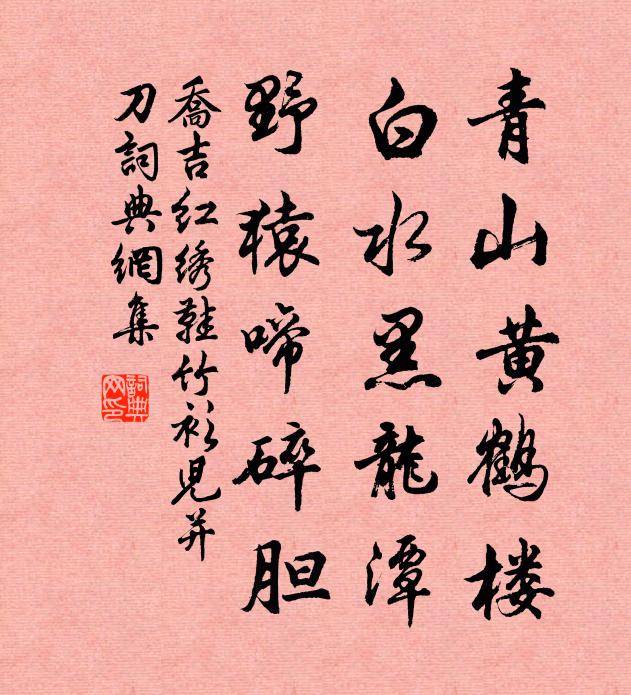 青山黄鹤楼
白水黑龍潭
野猿啼碎胆
喬吉红绣鞋竹衫儿并
刀詞典網集
詞典网印